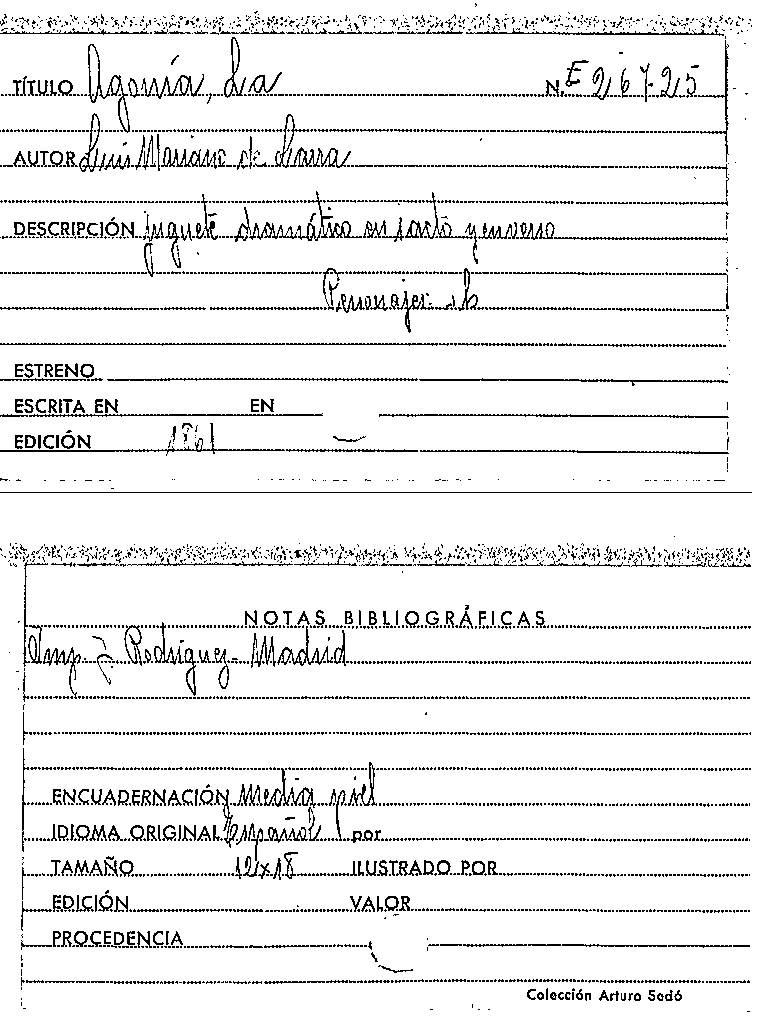 TÍTULO Agonía, La N. E 267-25
AUTOR Luis Mariano de Larra
DESCRIPCIÓN juguete dramático en 1 acto y en verso
Personajes:
ESTRENO
ESCRITA EN EN
EDICIÓN 1861
NOTAS BIBLIOGRÁFICAS
Imp. J. Rodríguez - Madrid
ENCUADERNACIÓN Media piel
IDIOMA ORIGINAL Español por
TAMAÑO 12x18 ILUSTRADO POR
EDICIÓN VALOR
PROCEDENCIA
Colección Arturo Sedó